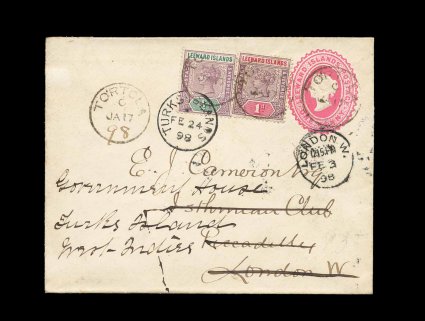 LEEWARD ISLANDS
LEEWARD ISLANDS
1d
LEEWARD ISLANDS
TORTOLA
C
JA 17
98
FE 24
98
LONDON. W.
FE 3
98
E. J. Cameron Esq
Government House
Isthmian Club
Turks Island
West Indies Piccadilly
London W.